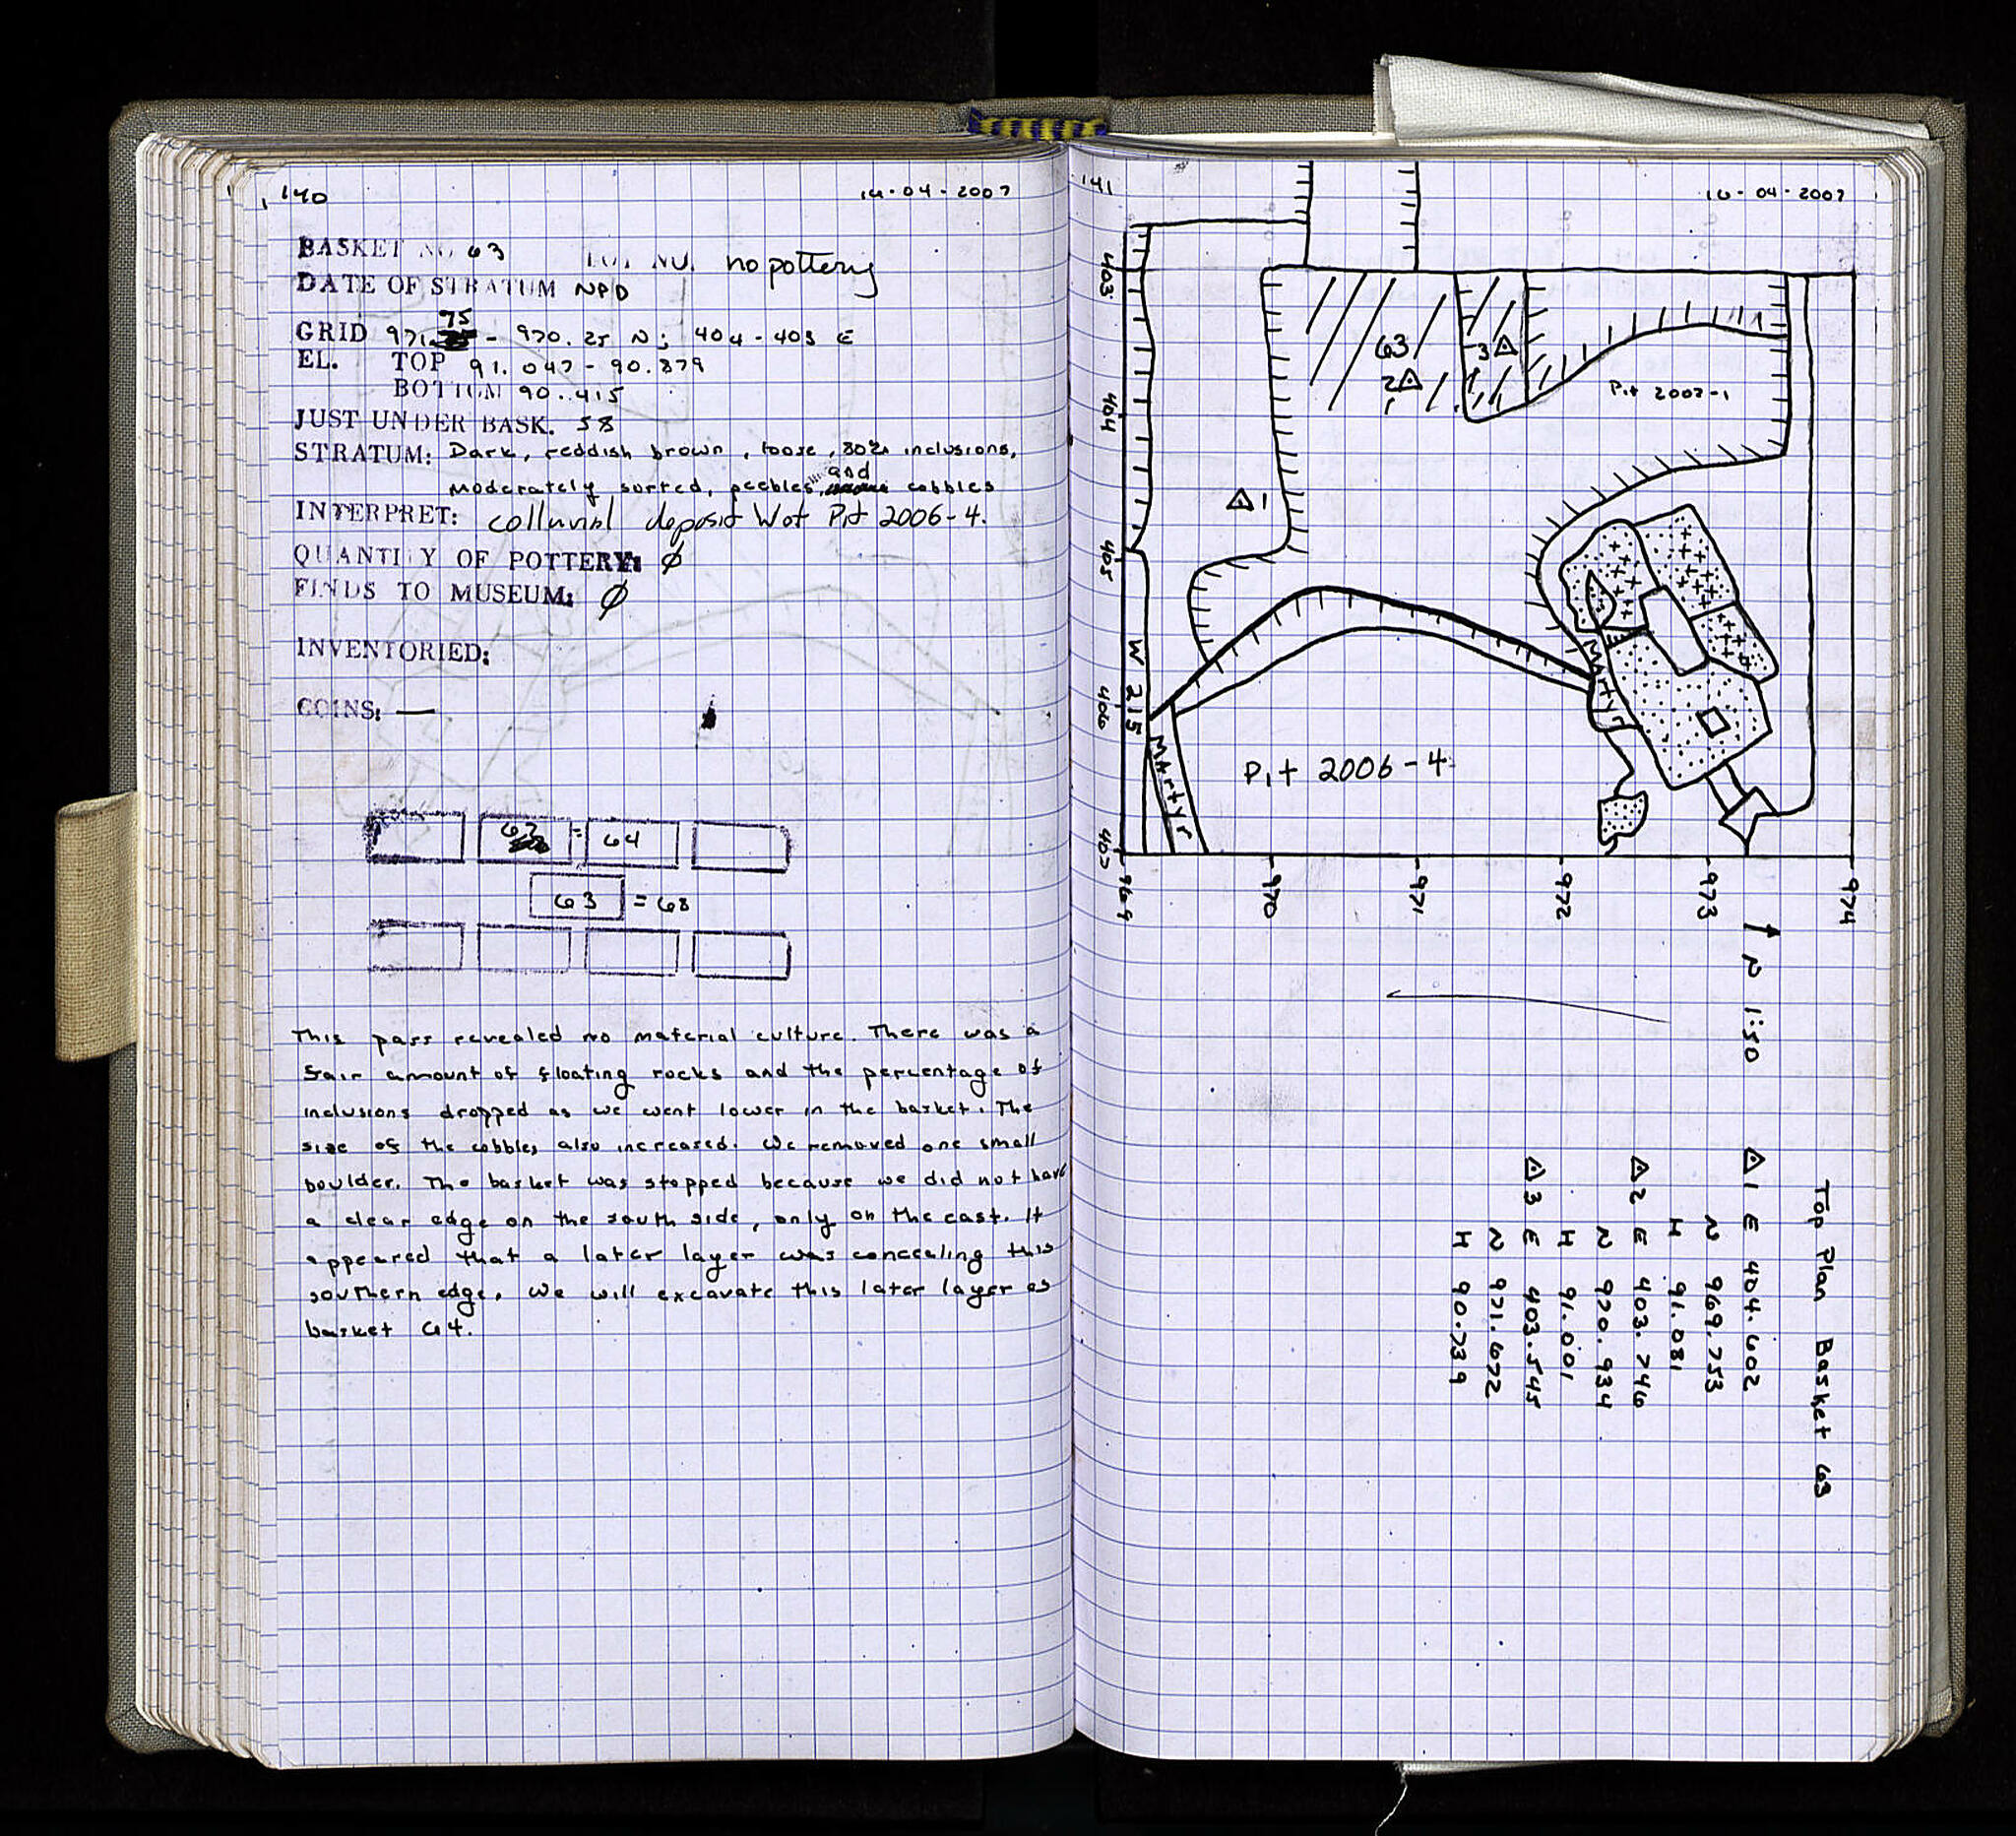 140
16-04-2007
BASKET NO 63 LOT NO. no pottery
DATE OF STRATUM NPD
GRID 971.75 - 970.25 N; 404-403 E
EL. TOP 91.047 - 90.879
BOTTOM 90.415
JUST UNDER BASK. 58
STRATUM: Dark, reddish brown, loose, 80% inclusions,
moderately sorted, peebles and cobbles
INTERPRET: colluvial deposit W of Pit 2006-4.
QUANTITY OF POTTERY: ∅
FINDS TO MUSEUM: ∅
INVENTORIED:
COINS: —
= 64
63 = 68
This pass revealed no material culture. There was a
fair amount of floating rocks and the percentage of
inclusions dropped as we went lower in the basket. The
size of the cobbles also increased. We removed one small
boulder. The basket was stopped because we did not have
a clear edge on the south side, only on the east. It
appeared that a later layer was concealing this
southern edge. We will excavate this later layer as
basket 64.
141
16-04-2007
403
404
405
406
407
W 215
Martyr
63
2
3
1
Pit 2007-1
Martyr
Pit 2006-4
969
970
971
972
973
974
N 1:50
Top Plan Basket 63
1 E 404.602
N 969.753
H 91.081
2 E 403.746
N 970.934
H 91.001
3 E 403.545
N 971.672
H 90.739